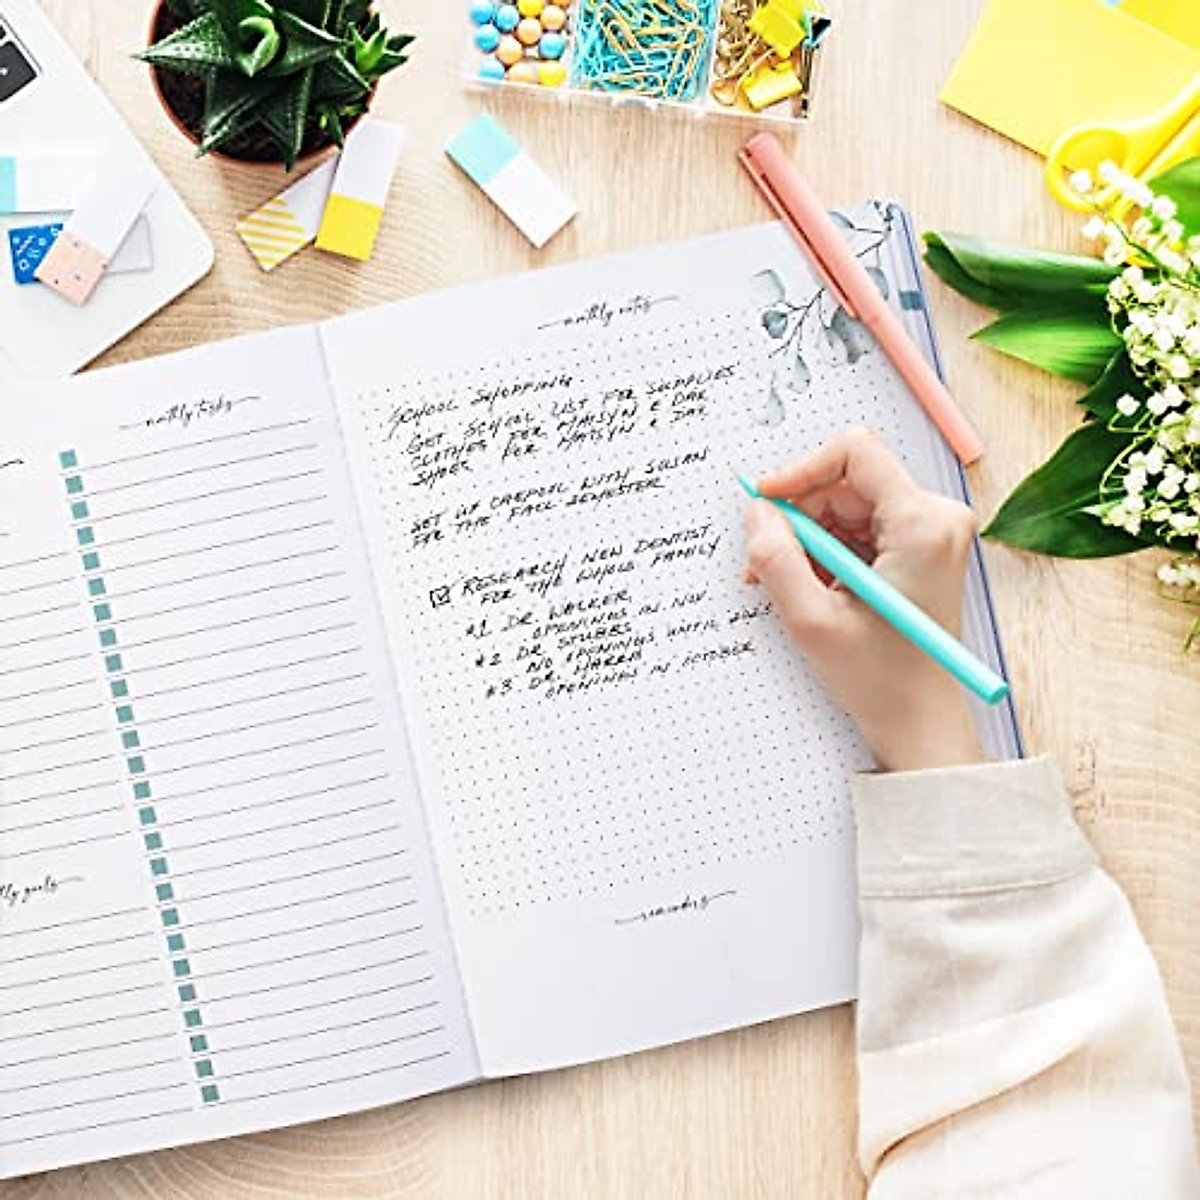 monthly tasks
ly goals
monthly notes
SCHOOL SHOPPING
GET SCHOOL LIST FOR SUPPLIES
CLOTHES FOR MAISYN & DAX
SHOES FOR MAISYN & JAX
SET UP CARPOOL WITH SUSAN
FOR THE FALL SEMESTER
RESEARCH NEW DENTIST
FOR THE WHOLE FAMILY
#1 DR. WALKER
OPENINGS IN NOV.
#2 DR STUBBS
NO OPENINGS UNTIL
#3 DR. HARRIS
OPENINGS IN OCTOBER
reminders